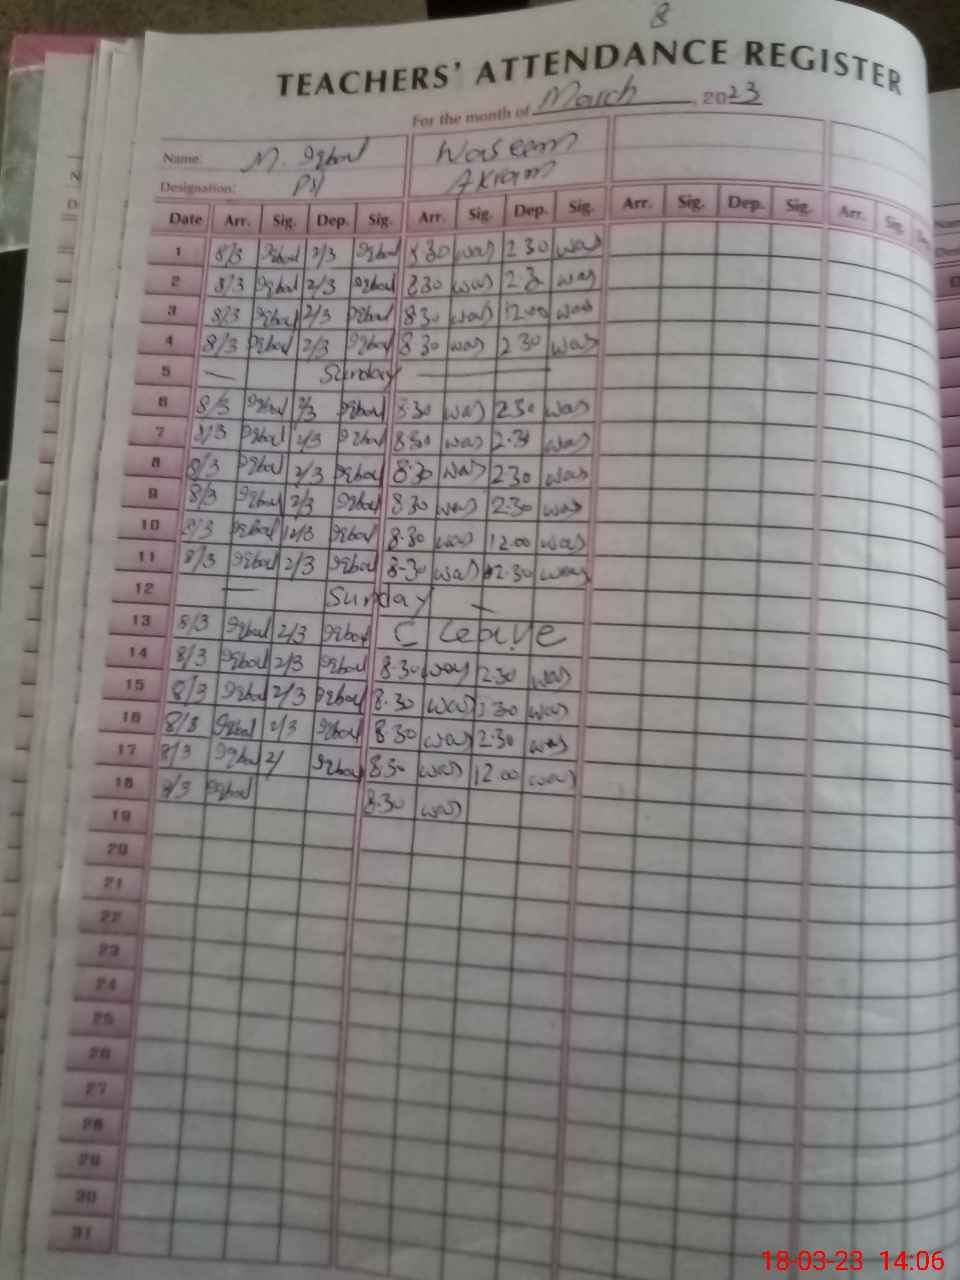 8
TEACHERS' ATTENDANCE REGISTER
For the month of March, 2023
Name: M. Iqbal Waseem
Designation: PST Akram
Date Arr. Sig. Dep. Sig. Arr. Sig. Dep. Sig. Arr. Sig. Dep. Sig. Arr. Sig.
1 8/3 Iqbal 2/3 Iqbal 8.30 was 2.30 was
2 8/3 Iqbal 2/3 Iqbal 8.30 was was
3 8/3 Iqbal 2/3 Iqbal 8.30 was 12.00 was
4 8/3 Iqbal 2/3 Iqbal 8.30 was 2.30 was
5 — Sunday —
6 8/3 Iqbal 2/3 Iqbal 8.30 was 2.30 was
7 8/3 Iqbal 2/3 Iqbal 8.30 was 2.30 was
8 8/3 Iqbal 2/3 Iqbal 8.30 was 2.30 was
9 8/3 Iqbal 2/3 Iqbal 8.30 was 2.30 was
10 8/3 Iqbal 12/3 Iqbal 8.30 was 12.00 was
11 8/3 Iqbal 2/3 Iqbal 8.30 was 2.30 was
12 — Sunday —
13 8/3 Iqbal 2/3 Iqbal C leave
14 8/3 Iqbal 2/3 Iqbal 8.30 was 2.30 was
15 8/3 Iqbal 2/3 Iqbal 8.30 was was
16 8/3 Iqbal 2/3 Iqbal 8.30 was 2.30 was
17 8/3 Iqbal 2/ Iqbal 8.30 was 12.00 was
18 8/3 Iqbal 8.30 was
19
20
21
22
23
24
25
26
27
28
29
30
31
18-03-23 14:06